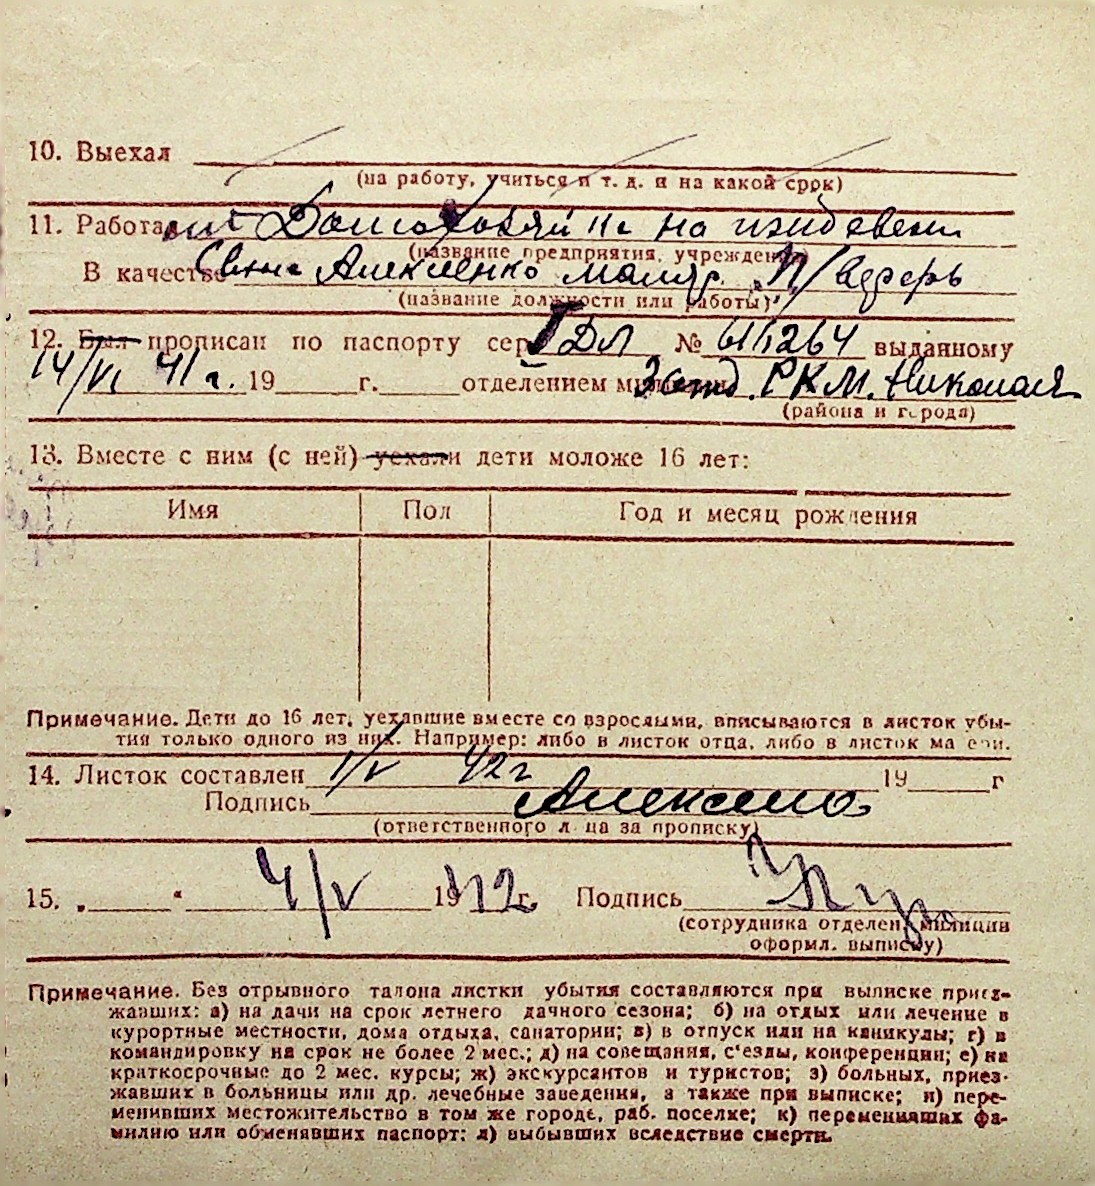 10. Выехал
(на работу, учиться и т. д. и на какой срок)
11. Работал Домохозяйка на иждевени
(название предприятия, учреждения)
В качестве Алексеенко маляр. П/верфь
(название должности или работы)
12. Был прописан по паспорту сер. ГДЛ № 611264 выданному
14/VI 41 г. 19 г. отделением милиции 3 отд. РКМ. Николаев
(района и города)
13. Вместе с ним (с ней) уехали дети моложе 16 лет:
Имя Пол Год и месяц рождения
Примечание. Дети до 16 лет, уехавшие вместе со взрослыми, вписываются в листок убы-
тия только одного из них. Например: либо в листок отца, либо в листок матери.
14. Листок составлен 1/V 42 г 19 г
Подпись
(ответственного лица за прописку)
15. „ “ 4/V 1942 г. Подпись
(сотрудника отделен. милиции
оформл. выписку)
Примечание. Без отрывного талона листки убытия составляются при выписке приез-
жавших: а) на дачи на срок летнего дачного сезона; б) на отдых или лечение в
курортные местности, дома отдыха, санатории; в) в отпуск или на каникулы; г) в
командировку на срок не более 2 мес.; д) на совещания, с'езды, конференции; е) на
краткосрочные до 2 мес. курсы; ж) экскурсантов и туристов; з) больных, приез-
жавших в больницы или др. лечебные заведения, а также при выписке; и) пере-
менивших местожительство в том же городе, раб. поселке; к) переменивших фа-
милию или обменявших паспорт; л) выбывших вследствие смерти.